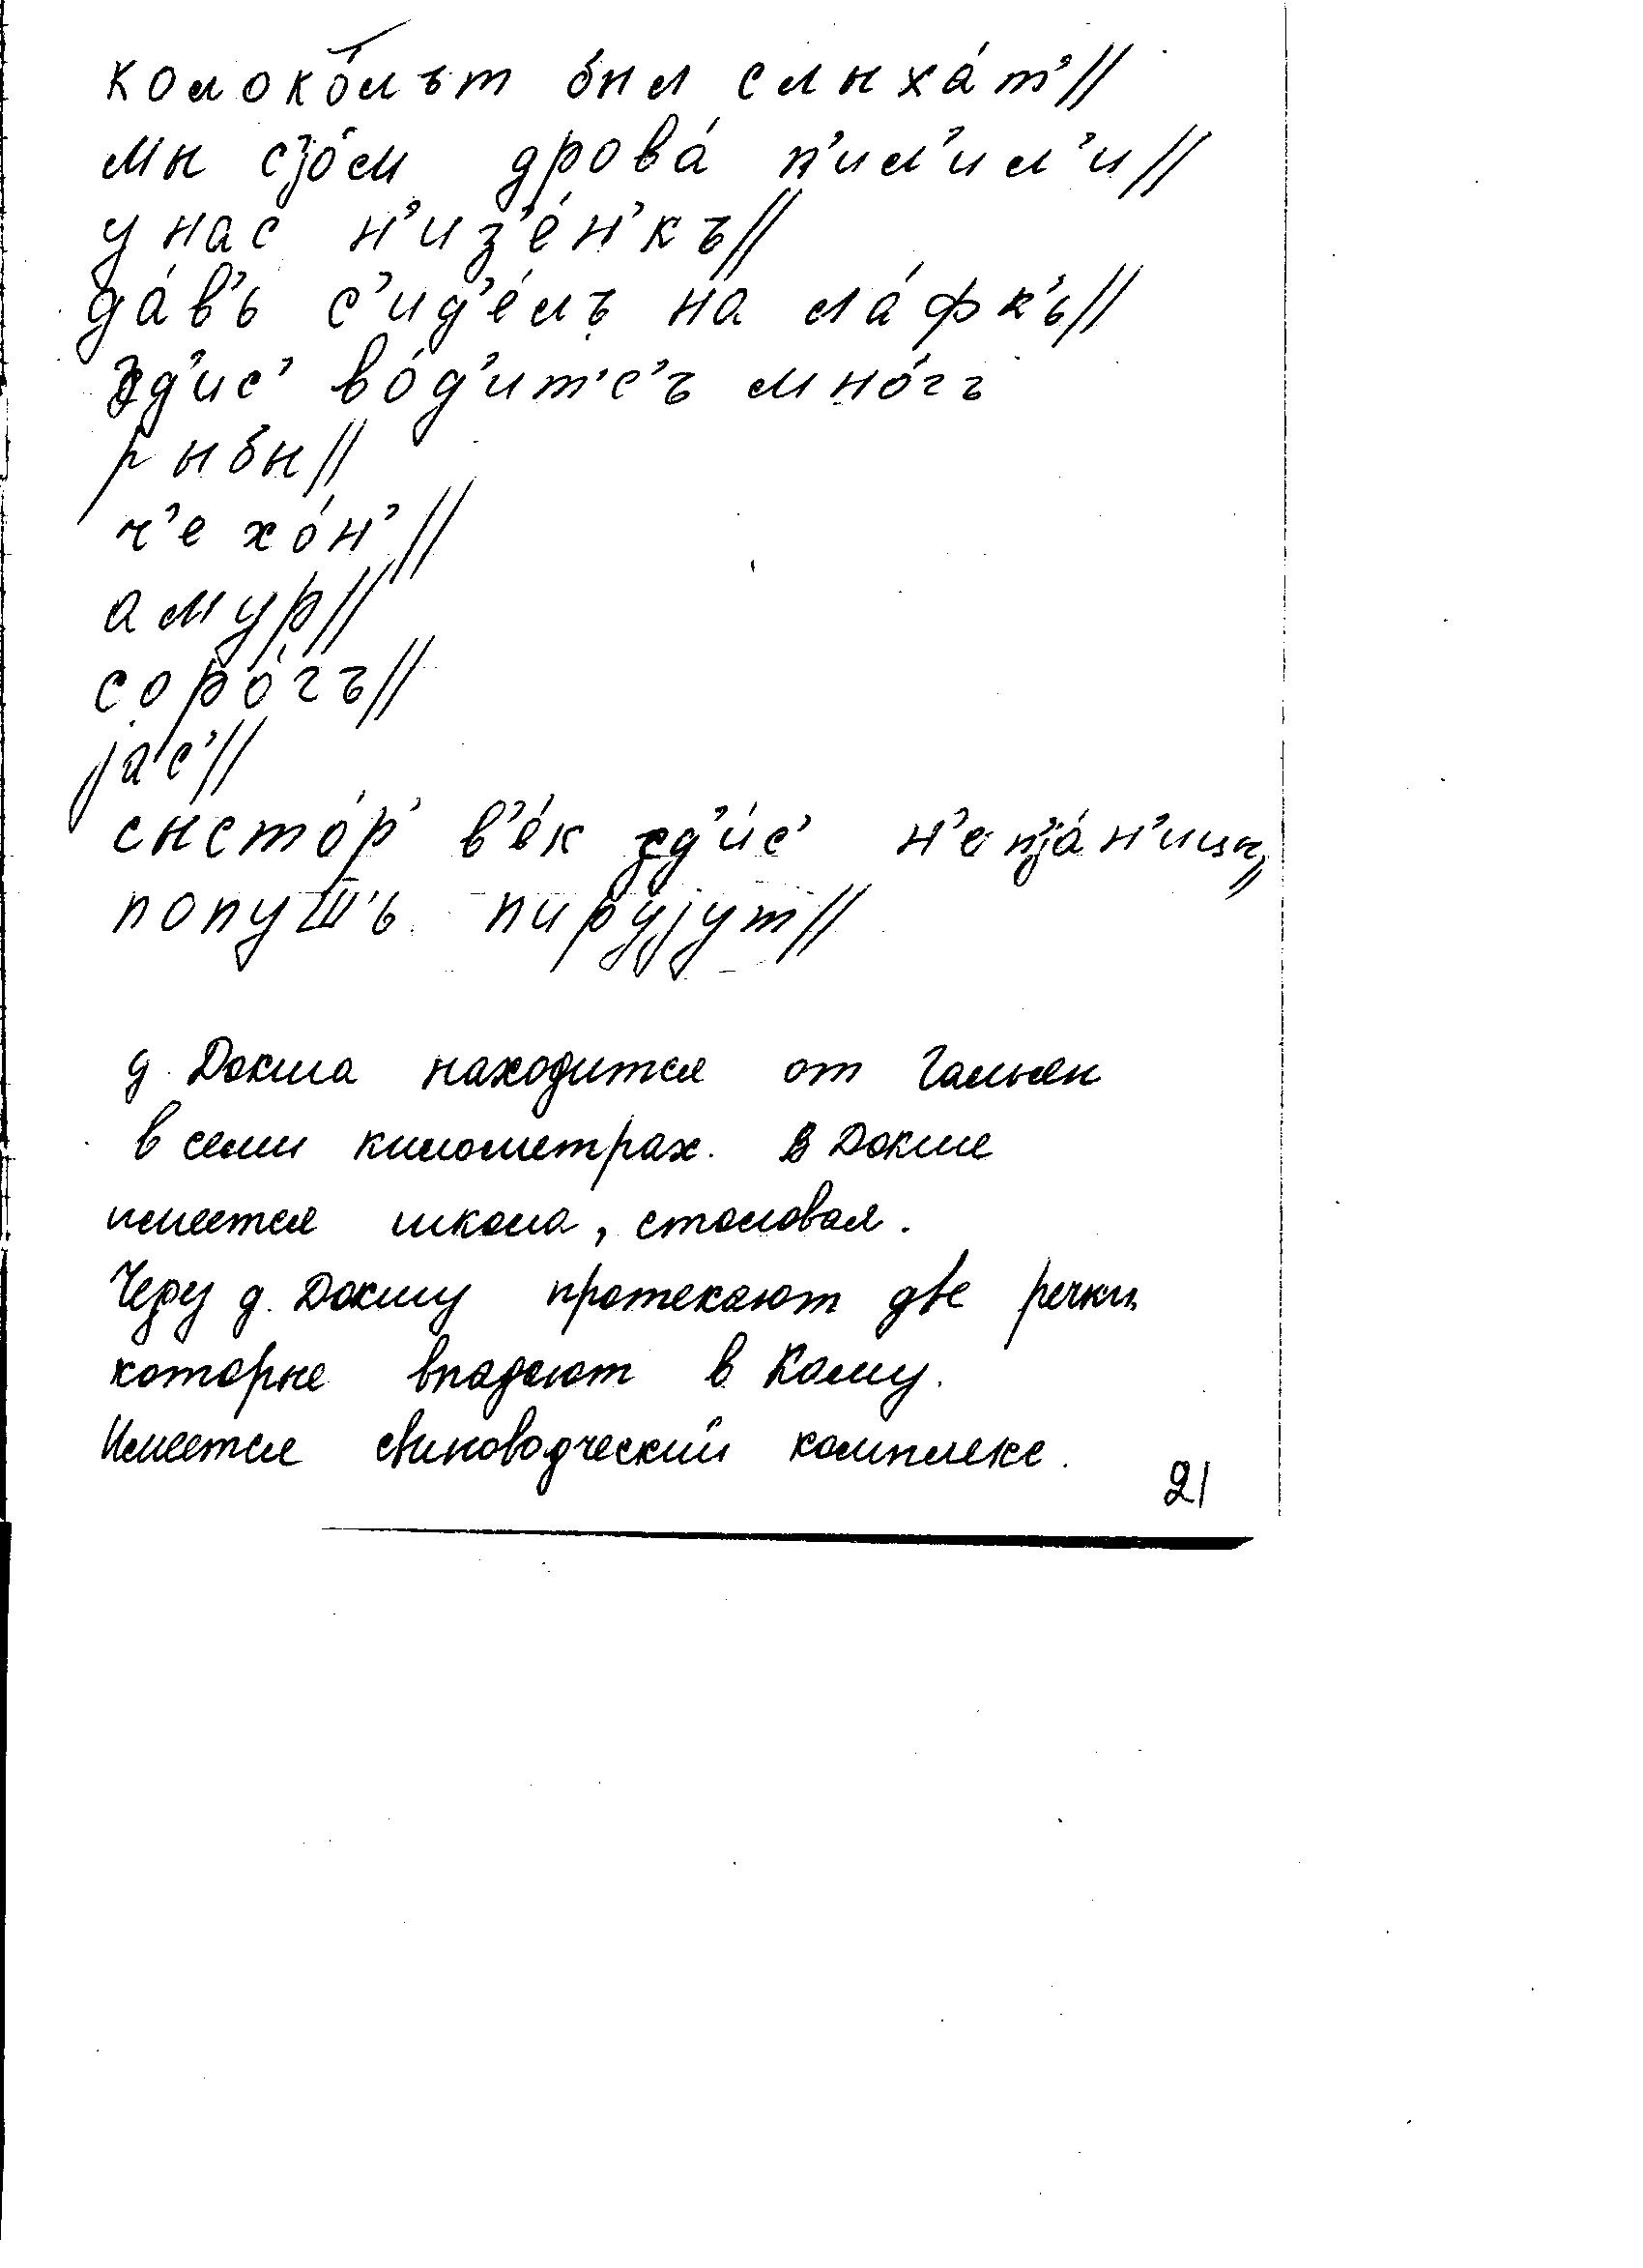 колоко́лът был слыха́т'//
мы сјо́м дрова́ п'ил'ил'и//
у нас н'из'е́н'къ//
да́в'ь с'ид'е́лъ на ла́фк'ь//
зд'ис' во́д'итс'ъ мно́гъ
рыбы//
ч'ехо́н'//
амур//
соро́гъ//
ја́с'//
сысто́р' в'е́к зд'и́с' н'е пја́н'ицы//
попуш'ь пирујут//
д. Докша находится от Гальян
в семи километрах. В Докше
имеется школа, столовая.
Через д. Докшу протекают две речки
которые впадают в Каму.
Имеется свиноводческий комплекс.
21